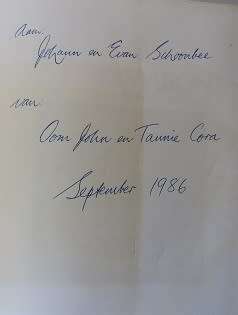 aan:
Johann en Evan Schoonbee
van:
Oom John en Tannie Cora
September 1986